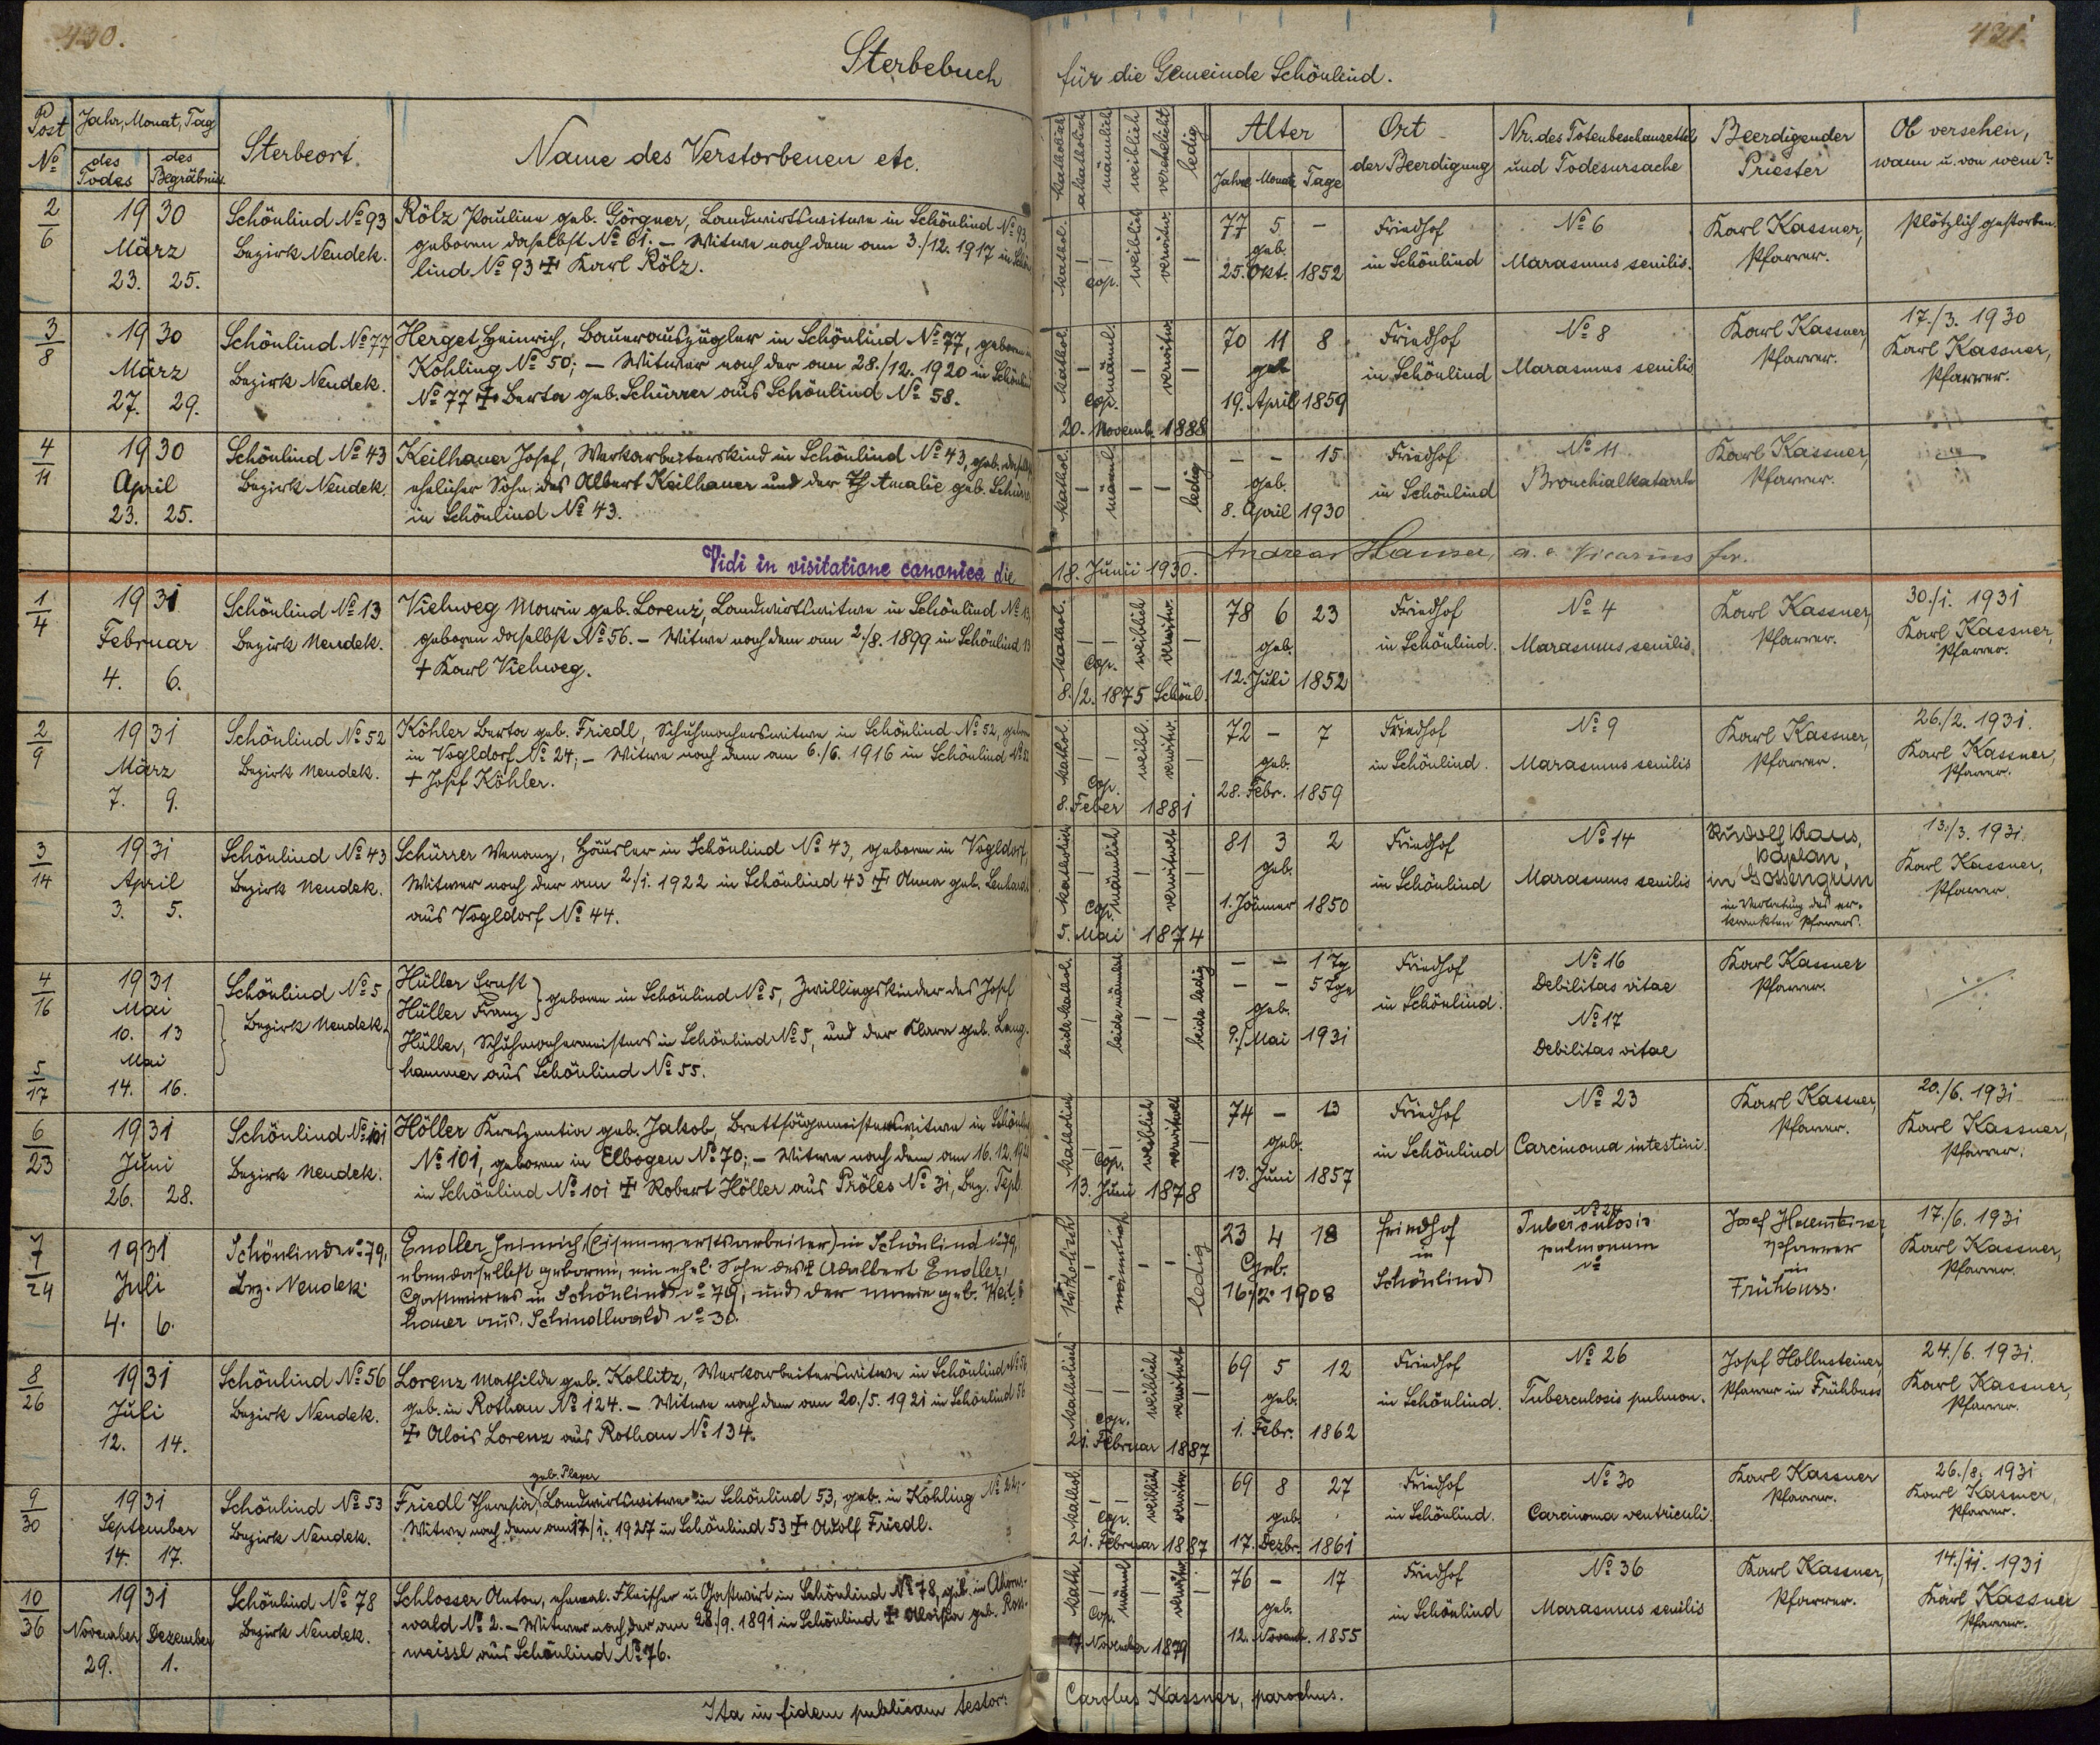 430.
431.
Sterbebuch für die Gemeinde Schönlind.
Post No
Jahr, Monat, Tag
des Todes
des Begräbnis.
Sterbeort.
Name des Verstorbenen etc.
katholisch
akatholisch
männlich
weiblich
verehelicht
ledig
Alter
Jahre Monate Tage
Ort der Beerdigung
Nr. des Totenbeschauzettels und Todesursache
Beerdigender Priester
Ob versehen, wann u. von wem?
2/6
1930
März
23. 25.
Schönlind No 93
Bezirk Neudek.
Rölz Pauline geb. Görgner, Landwirtswitwe in Schönlind No 93,
geboren daselbst No 61. – Witwe nach dem am 3./12. 1917 in Schön-
lind No 93 ✝ Karl Rölz.
kathol. – – weiblich verwitw. –
Cop.
77 5 –
geb.
25. Okt. 1852
Friedhof
in Schönlind
No 6
Marasmus senilis.
Karl Kassner,
Pfarrer.
Plötzlich gestorben.
3/8
1930
März
27. 29.
Schönlind No 77
Bezirk Neudek.
Herget Heinrich, Bauerauszügler in Schönlind No 77, geboren in
Kohling No 50; – Witwer nach der am 28./12. 1920 in Schönlind
No 77 ✝ Berta geb. Schürrer aus Schönlind No 58.
kathol. – männl. – verwitw. –
Cop.
20. Novemb. 1888
70 11 8
geb.
19. April 1859
Friedhof
in Schönlind
No 8
Marasmus senilis
Karl Kassner,
Pfarrer.
17./3. 1930
Karl Kassner,
Pfarrer.
4/11
1930
April
23. 25.
Schönlind No 43
Bezirk Neudek.
Keilhauer Josef, Werkarbeiterskind in Schönlind No 43, geb. daselbst
ehelicher Sohn des Albert Keilhauer und der Amalie geb. Schürrer
in Schönlind No 43.
kathol. – männl. – – ledig
– – 15
geb.
8. April 1930
Friedhof
in Schönlind
No 11
Bronchialkatarrh
Karl Kassner,
Pfarrer.
—
Vidi in visitatione canonica die 18. Junii 1930. Andreas Hauser, a. e. Vicarius for.
1/4
1931
Februar
4. 6.
Schönlind No 13
Bezirk Neudek.
Viehweg Marie geb. Lorenz, Landwirtswitwe in Schönlind No 13,
geboren daselbst No 56. – Witwe nach dem am 2./8. 1899 in Schönlind 13
+ Karl Viehweg.
kathol. – – weiblich verwitw. –
Cop.
8./2. 1875 Schönl.
78 6 23
geb.
12. Juli 1852
Friedhof
in Schönlind.
No 4
Marasmus senilis
Karl Kassner,
Pfarrer.
30./1. 1931
Karl Kassner,
Pfarrer.
2/9
1931
März
7. 9.
Schönlind No 52
Bezirk Neudek.
Köhler Berta geb. Friedl, Schuhmacherswitwe in Schönlind No 52, geboren
in Vogldorf No 24; – Witwe nach dem am 6./6. 1916 in Schönlind No 52
+ Josef Köhler.
kathol. – – weibl. verwitw. –
Cop.
8. Feber 1881
72 – 7
geb.
28. Febr. 1859
Friedhof
in Schönlind.
No 9
Marasmus senilis
Karl Kassner,
Pfarrer.
26./2. 1931.
Karl Kassner,
Pfarrer.
3/14
1931
April
3. 5.
Schönlind No 43
Bezirk Neudek.
Schürrer Wenanz, Häusler in Schönlind No 43, geboren in Vogldorf,
Witwer nach der am 2./1. 1922 in Schönlind 43 ✝ Anna geb. Lenhard
aus Vogldorf No 44.
katholisch – männlich – verwitwet –
Cop.
5. Mai 1874
81 3 2
geb.
1. Jänner 1850
Friedhof
in Schönlind
No 14
Marasmus senilis
Rudolf Kaus,
Kaplan,
in Gossengrün
in Vertretung des er-
krankten Pfarrers.
13./3. 1931.
Karl Kassner,
Pfarrer.
4/16
1931
Mai
10. 13
Mai
5/17
14. 16.
Schönlind No 5
Bezirk Neudek.
Hüller Ernst
Hüller Franz } geboren in Schönlind No 5, Zwillingskinder des Josef
Hüller, Schuhmachermeisters in Schönlind No 5, und der Klara geb. Lang-
hammer aus Schönlind No 55.
beide kathol. – beide männlich – – beide ledig
– – 1 Tg
– – 5 Tge
geb.
9./Mai 1931
Friedhof
in Schönlind.
No 16
Debilitas vitae
No 17
Debilitas vitae
Karl Kassner
Pfarrer.
6/23
1931
Juni
26. 28.
Schönlind No 101
Bezirk Neudek.
Höller Kreszentia geb. Jakob, Brettsägemeisterswitwe in Schönlind
No 101, geboren in Elbogen No 70; – Witwe nach dem am 16. 12. 192
in Schönlind No 101 ✝ Robert Höller aus Pröles No 31, Bez. Tepl.
katholisch – – weiblich verwitwet –
Cop.
13. Juni 1878
74 – 13
geb.
13. Juni 1857
Friedhof
in Schönlind
No 23
Carcinoma intestini.
Karl Kassner,
Pfarrer.
20./6. 1931
Karl Kassner,
Pfarrer.
7/24
1931
Juli
4. 6.
Schönlind No 79,
Bez. Neudek
Endler Heinrich, (Eisenwerksarbeiter) in Schönlind No 79,
ebendaselbst geboren, ein ehel. Sohn des ✝ Adalbert Endler,
Gastwirtes in Schönlind No 79, und der Marie geb. Keil-
hauer aus Schindlwald No 30.
katholisch – männlich – – ledig
23 4 18
Geb.
16./2. 1908
Friedhof
in
Schönlind
No 24
Tuberculosis
pulmonum
Josef Hollensteiner,
Pfarrer
in
Frühbuss.
17./6. 1931
Karl Kassner,
Pfarrer.
8/26
1931
Juli
12. 14.
Schönlind No 56
Bezirk Neudek.
Lorenz Mathilde geb. Kollitz, Werkarbeiterswitwe in Schönlind No 56
geb. in Rothau No 124. – Witwe nach dem am 20./5. 1921 in Schönlind 56
✝ Alois Lorenz aus Rothau No 134.
katholisch – – weiblich verwitwet –
Cop.
21. Februar 1887
69 5 12
geb.
1. Febr. 1862
Friedhof
in Schönlind.
No 26
Tuberculosis pulmon.
Josef Hollensteiner,
Pfarrer in Frühbuss
24./6. 1931.
Karl Kassner,
Pfarrer.
9/30
1931
September
14. 17.
Schönlind No 53
Bezirk Neudek.
geb. Player
Friedl Theresia, Landwirtswitwe in Schönlind 53, geb. in Kohling No 24;-
Witwe nach dem am 17./1. 1927 in Schönlind 53 ✝ Adolf Friedl.
kathol. – – weiblich verwitw. –
Cop.
21. Februar 1887
69 8 27
geb.
17. Dezbr. 1861
Friedhof
in Schönlind.
No 30
Carcinoma ventriculi.
Karl Kassner
Pfarrer.
26./8. 1931
Karl Kassner,
Pfarrer.
10/36
1931
November Dezember
29. 1.
Schönlind No 78
Bezirk Neudek.
Schlosser Anton, ehemal. Fleischer u. Gastwirt in Schönlind No 78, geb. in Ahorns-
wald No 2. – Witwer nach der am 28./9. 1891 in Schönlind ✝ Aloisia geb. Ross-
meissl aus Schönlind No 76.
kath. – männl – verwitw. –
Cop.
17. November 1879
76 – 17
geb.
12. Novemb. 1855
Friedhof
in Schönlind
No 36
Marasmus senilis
Karl Kassner,
Pfarrer.
14./11. 1931
Karl Kassner
Pfarrer.
Ita in fidem publicam testor: Carolus Kassner, parochus.